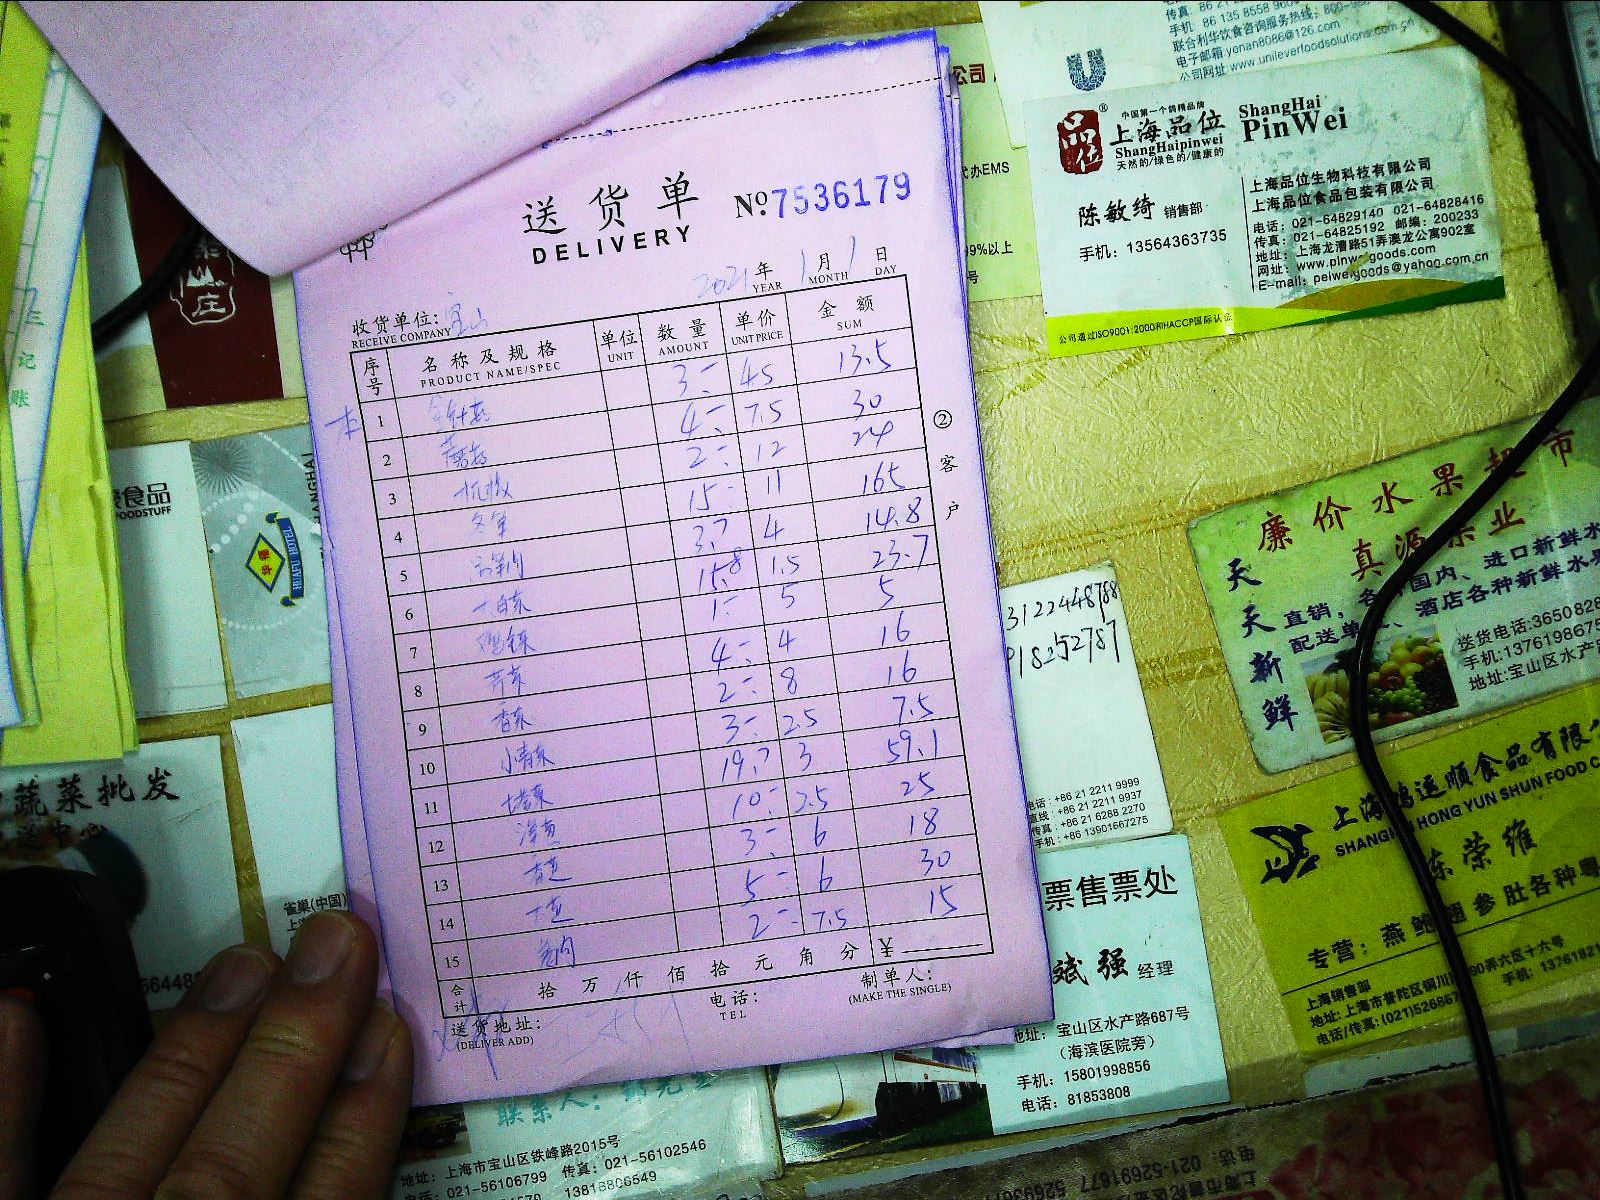 送货单 No. 7536179
DELIVERY
2021年 1月 1日
YEAR MONTH DAY
收货单位: 宝山
RECEIVE COMPANY
序号 名称及规格 单位 数量 单价 金额
PRODUCT NAME/SPEC UNIT AMOUNT UNIT PRICE SUM
1 金针菇 3 45 13.5
2 蘑菇 4 7.5 30
3 2 12 24
4 冬笋 15 11 165
5 3.7 4 14.8
6 大白菜 15.8 1.5 23.7
7 1 5 5
8 芹菜 4 4 16
9 香菜 2 8 16
10 小青菜 3 2.5 7.5
11 19.7 3 59.1
12 洋葱 10 2.5 25
13 香葱 3 6 18
14 大葱 5 6 30
15 2 7.5 15
合计 拾 万 仟 佰 拾 元 角 分 ¥
送货地址: 电话: 制单人:
(DELIVER ADD) TEL (MAKE THE SINGLE)
② 客户
传真: 86 21
手机: 86 135 8558
联合利华饮食咨询服务热线: 800-
电子邮箱 yenan8086@126.com
公司网址 www.unileverfoodsolutions.com.cn
公司
代办EMS
99%以上
号
中国第一个鸽精品牌
品位® 上海品位 ShangHai
ShangHaipinwei PinWei
天然的/绿色的/健康的
陈敏绮 销售部
手机: 13564363735
上海品位生物科技有限公司
上海品位食品包装有限公司
电话: 021-64829140 021-64828416
传真: 021-64825192 邮编: 200233
地址: 上海龙漕路51弄澳龙公寓902室
网址: www.pinweigoods.com
E-mail: peiweigoods@yahoo.com.cn
公司通过ISO9001:2000和HACCP国际认证
廉价水果超市
天天新鲜
直销,
国内、进口新鲜水
配送单
酒店各种新鲜水果
送货电话:3650828
手机:1376198675
地址:宝山区水产
3122448788
918252787
电话: +86 21 2211 9999
直线: +86 21 2211 9937
传真: +86 21 6288 2270
手机: +86 13901667275
上海鸿运顺食品有限公
SHANGHAI HONG YUN SHUN FOOD C
陈荣维
专营: 燕 鲍 翅 参 肚各种粤
上海销售部
地址: 上海市普陀区铜川
90弄六区十六号
电话/传真: (021)526867
手机: 13761821
票售票处
斌强 经理
地址: 宝山区水产路687号
(海滨医院旁)
手机: 15801998856
电话: 81853808
联系人:
地址: 上海市宝山区铁峰路2015号
传真: 021-56102546
电话: 021-56106799
13816806549
庄
三
记
账
食品
FOODSTUFF
SHANGHAI
华福
HUAFU HOTEL
蔬菜批发
送中心
雀巢(中国)
上海
56448
021-52691677